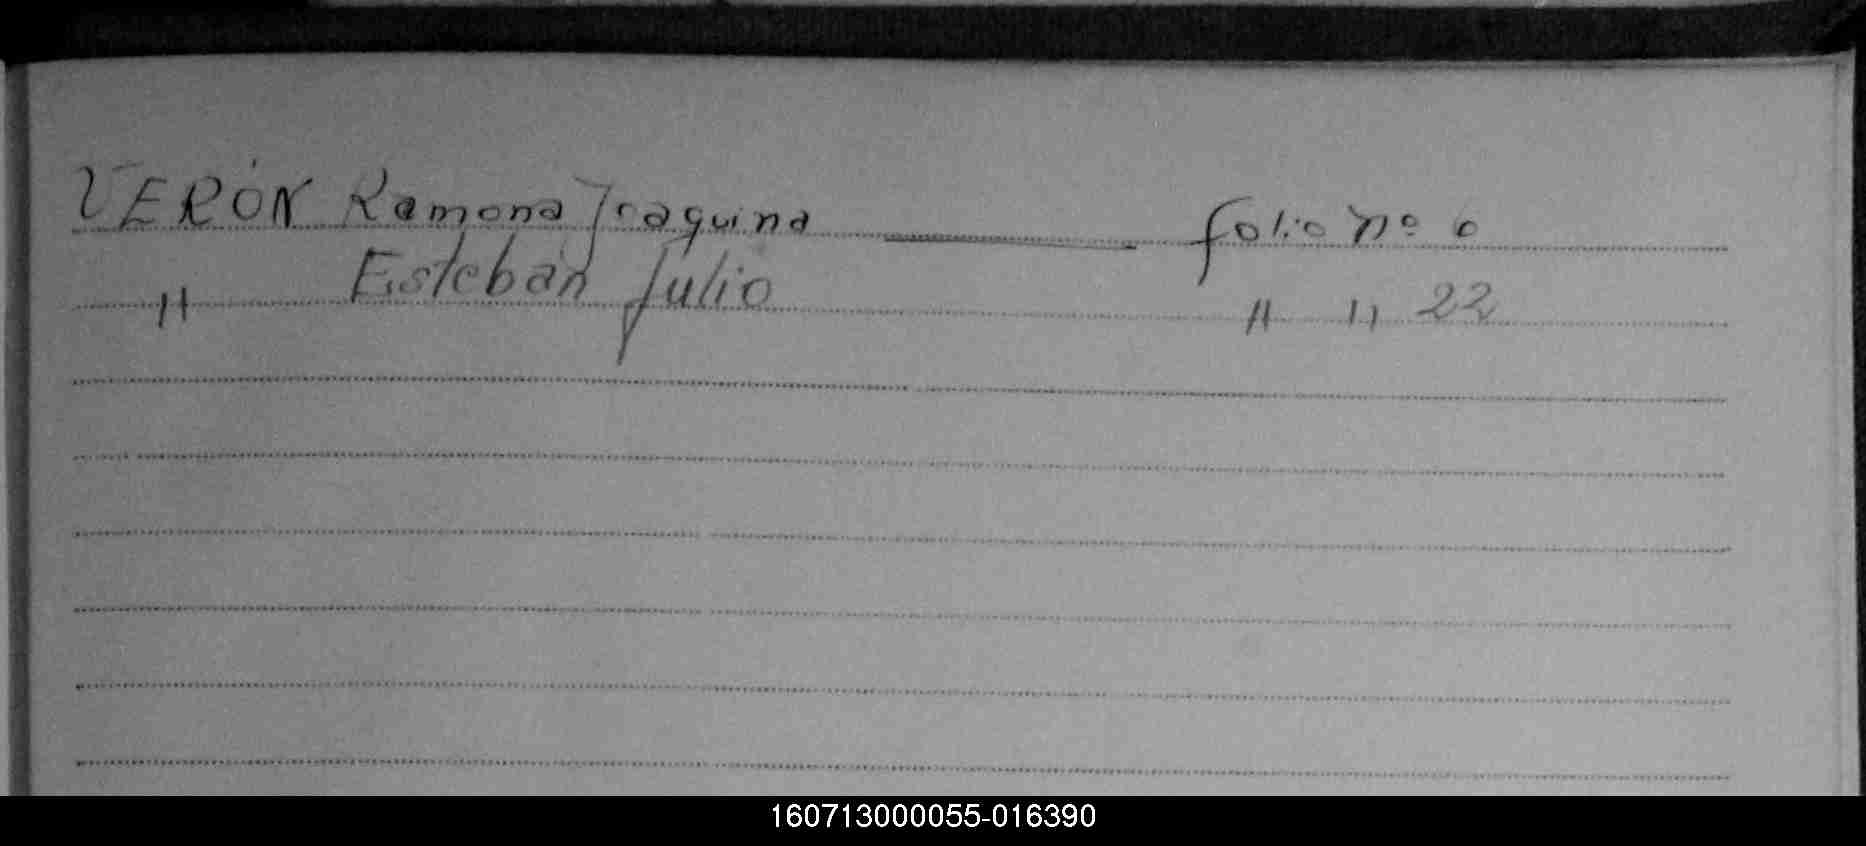 VERÓN Ramona Joaquina ——— folio nº 6
" Esteban Julio " " 22
160713000055-016390